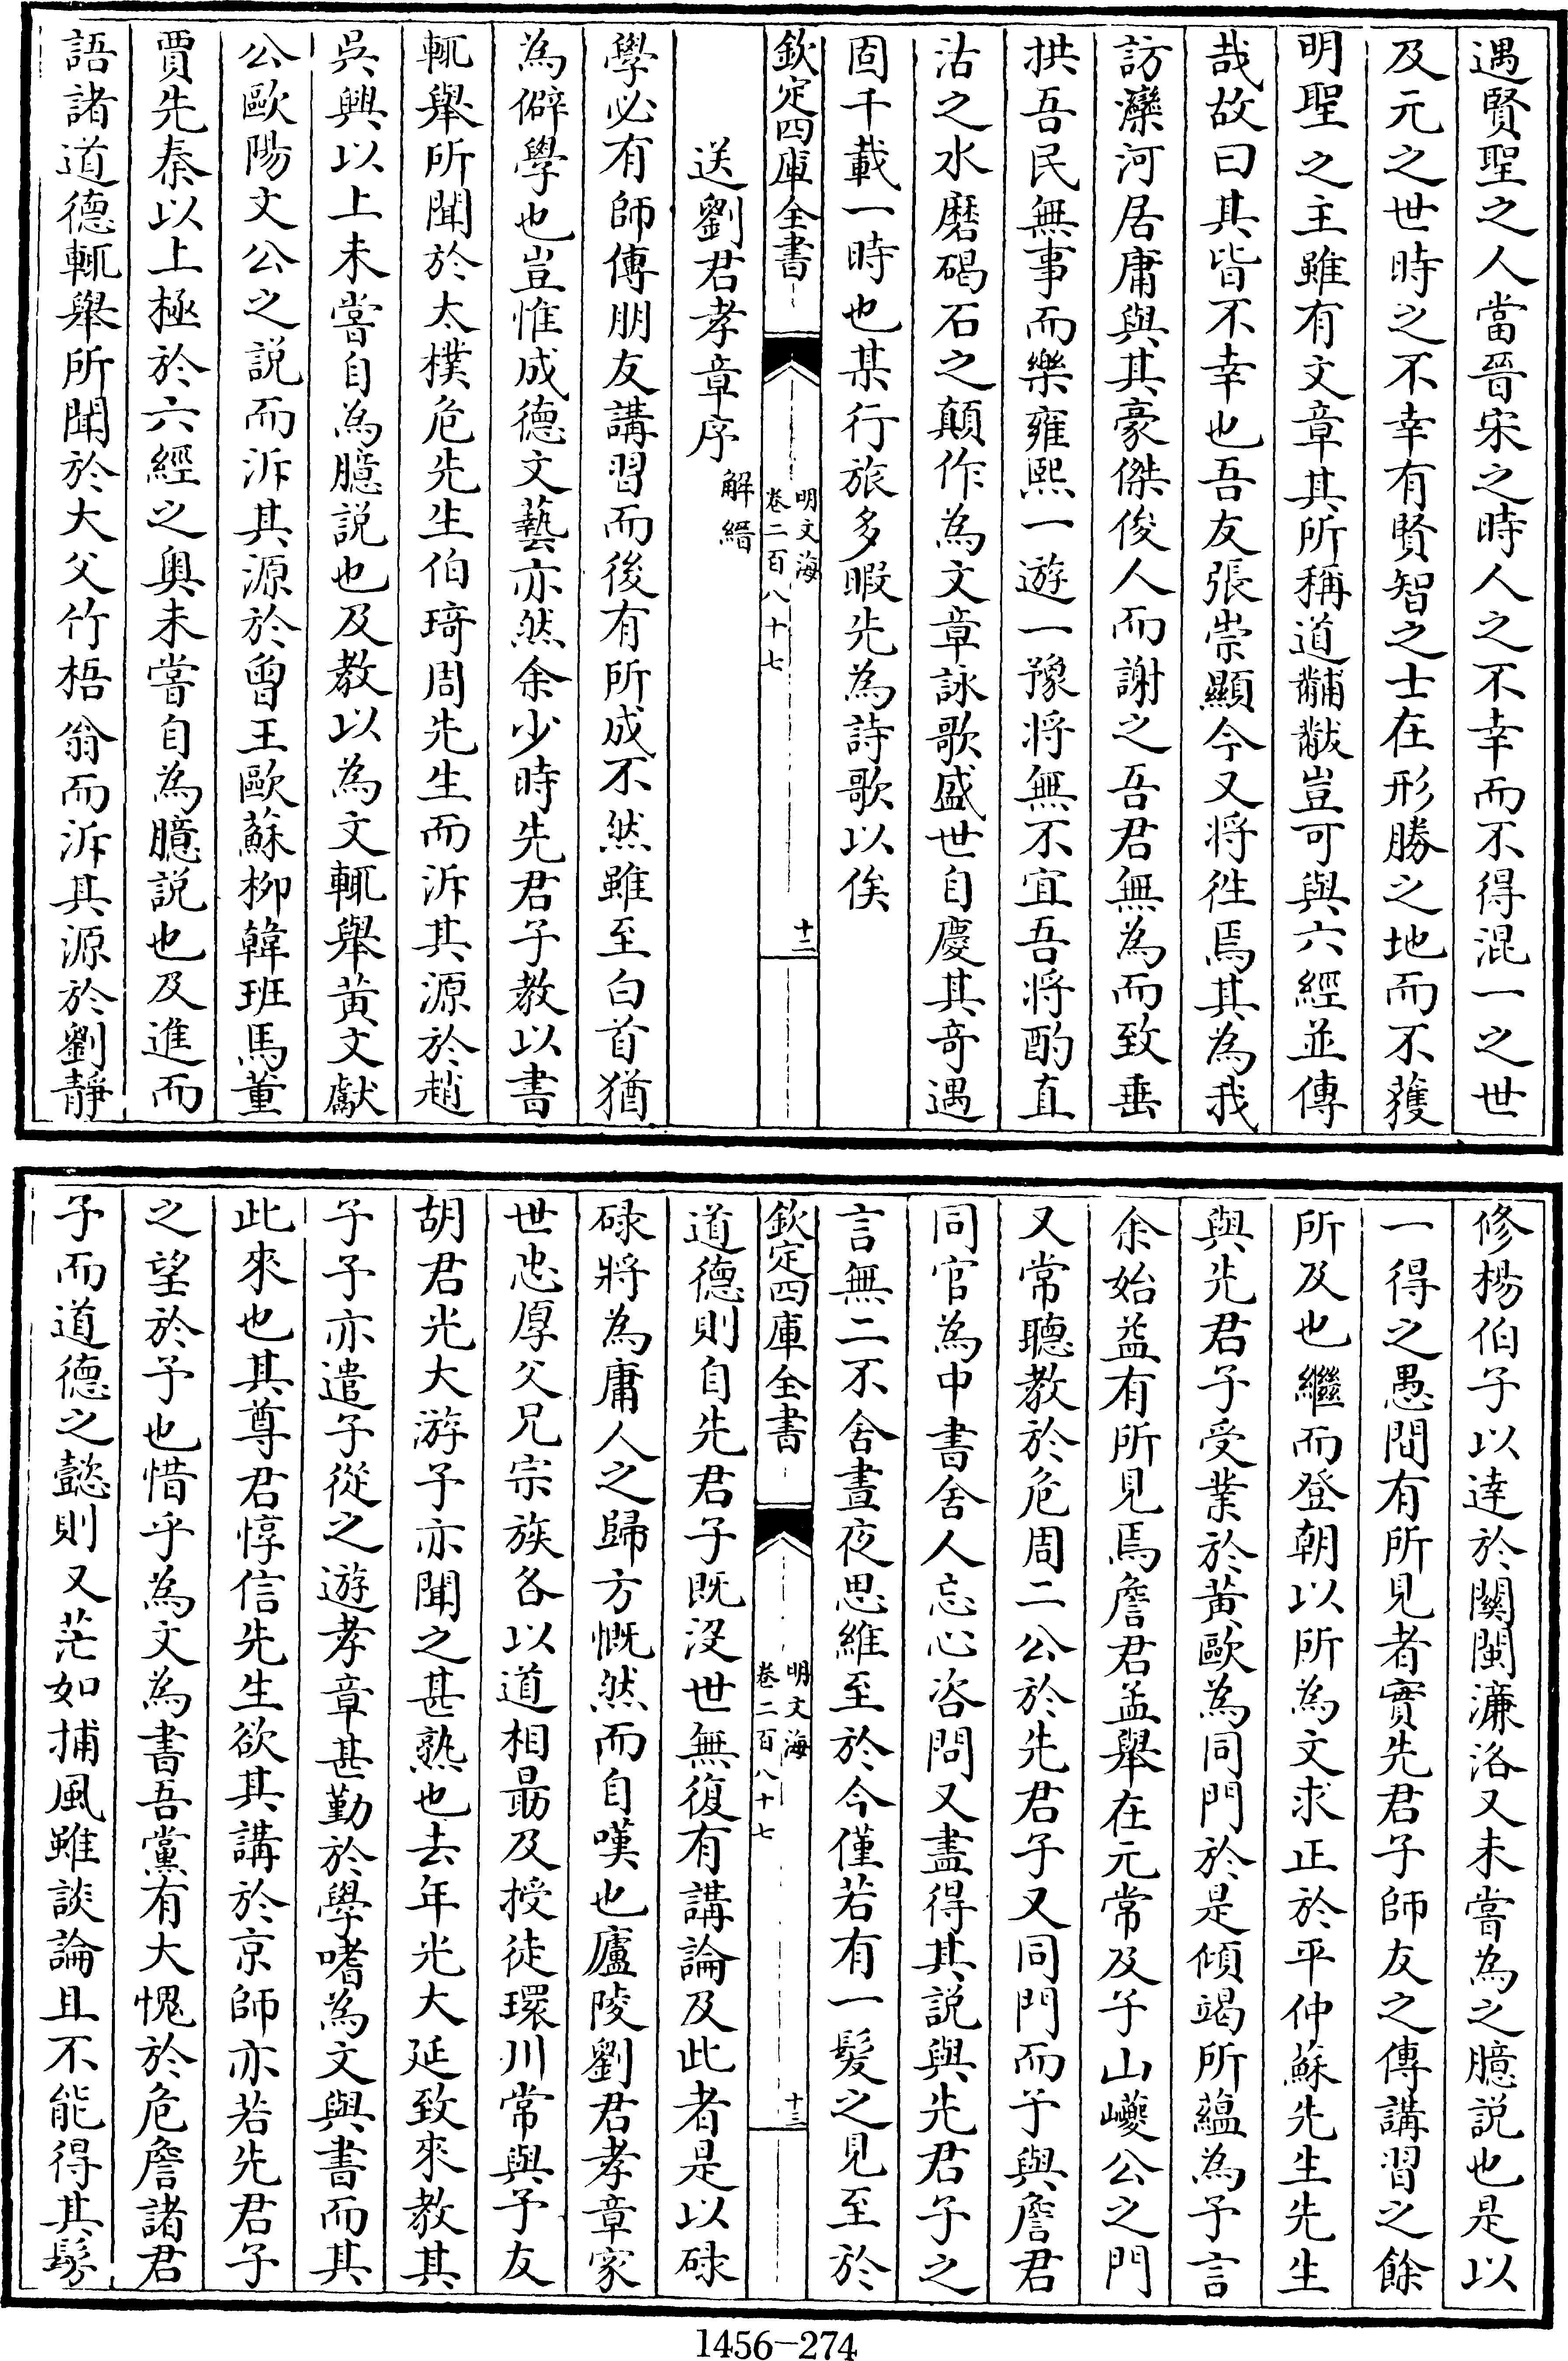 遇賢聖之人當晉宋之時人之不幸而不得混一之世
及元之世時之不幸有賢智之士在形勝之地而不獲
明聖之主雖有文章其所稱道黼黻豈可與六經並傳
哉故曰其皆不幸也吾友張崇顯今又将徃焉其為我
訪灤河居庸與其豪傑俊人而謝之吾君無為而致垂
拱吾民無事而樂雍熙一遊一豫将無不宜吾將酌直
沽之水磨碣石之顛作為文章詠歌盛世自慶其奇遇
固千載一時也某行旅多暇先為詩歌以俟
欽定四庫全書
明文海
卷二百八十七
十二
送劉君孝章序
解縉
學必有師傳朋友講習而後有所成不然雖至白首猶
為僻學也豈惟成徳文藝亦然余少時先君子教以書
輒舉所聞於太樸危先生伯琦周先生而泝其源於趙
吳興以上未嘗自為臆説也及教以為文輒舉黄文獻
公歐陽文公之説而泝其源於曾王歐蘇柳韓班馬董
賈先秦以上極於六經之奥未嘗自為臆説也及進而
語諸道徳輒舉所聞於大父竹梧翁而泝其源於劉靜
修楊伯子以達於關閩濂洛又未嘗為之臆説也是以
一得之愚間有所見者實先君子師友之傳講習之餘
所及也繼而登朝以所為文求正於平仲蘇先生先生
與先君子受業於黄歐為同門於是傾竭所蘊為予言
余始益有所見焉詹君孟舉在元常及子山巙公之門
又常聽教於危周二公於先君子又同門而予與詹君
同官為中書舍人忘心咨問又盡得其説與先君子之
言無二不舍晝夜思維至於今僅若有一髪之見至於
欽定四庫全書
明文海
卷二百八十七
十三
道徳則自先君子既沒世無復有講論及此者是以碌
碌將為庸人之歸方慨然而自嘆也廬陵劉君孝章家
世忠厚父兄宗族各以道相勗及授徒環川常與予友
胡君光大游予亦聞之甚熟也去年光大延致來教其
子予亦遣子從之遊孝章甚勤於學嗜為文與書而其
此來也其尊君惇信先生欲其講於京師亦若先君子
之望於予也惜乎為文為書吾黨有大愧於危詹諸君
子而道徳之懿則又茫如捕風雖談論且不能得其髣
1456-274